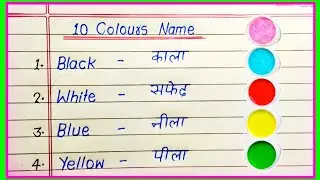 10 Colours Name
1. Black - काला
2. White - सफेद
3. Blue - नीला
4. Yellow - पीला